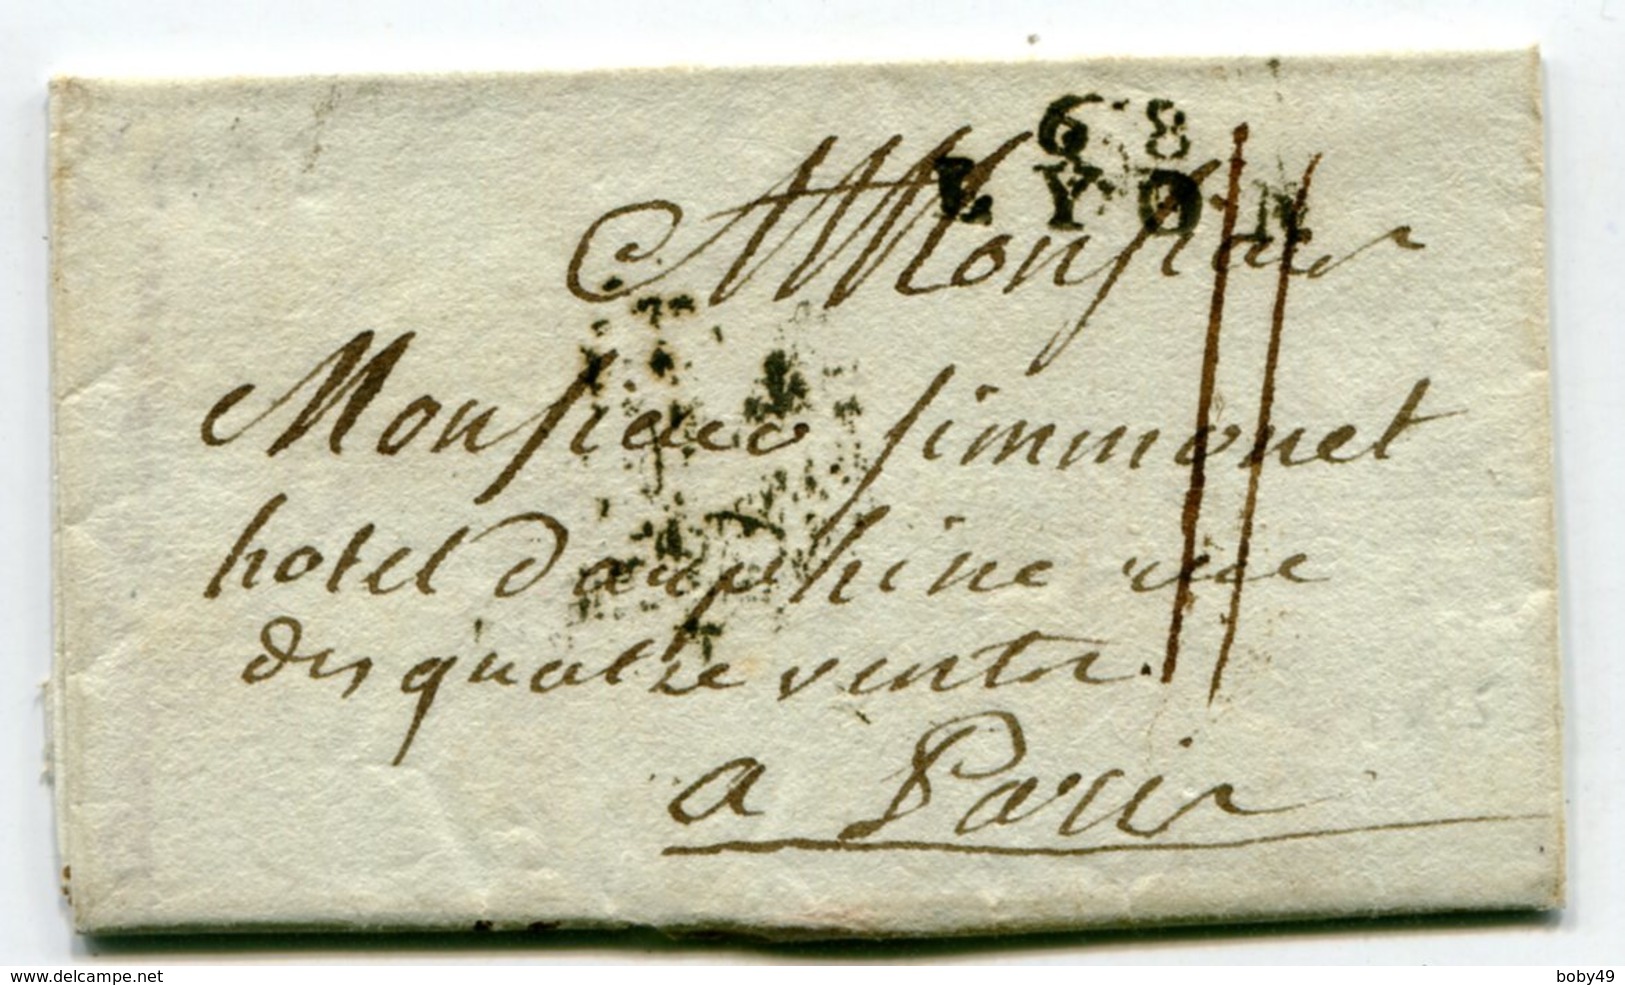 68
LYON
Monsieur
Monsieur simmonet
hotel dauphine rue
des quatre vents.
a Paris
www.delcampe.net
boby49